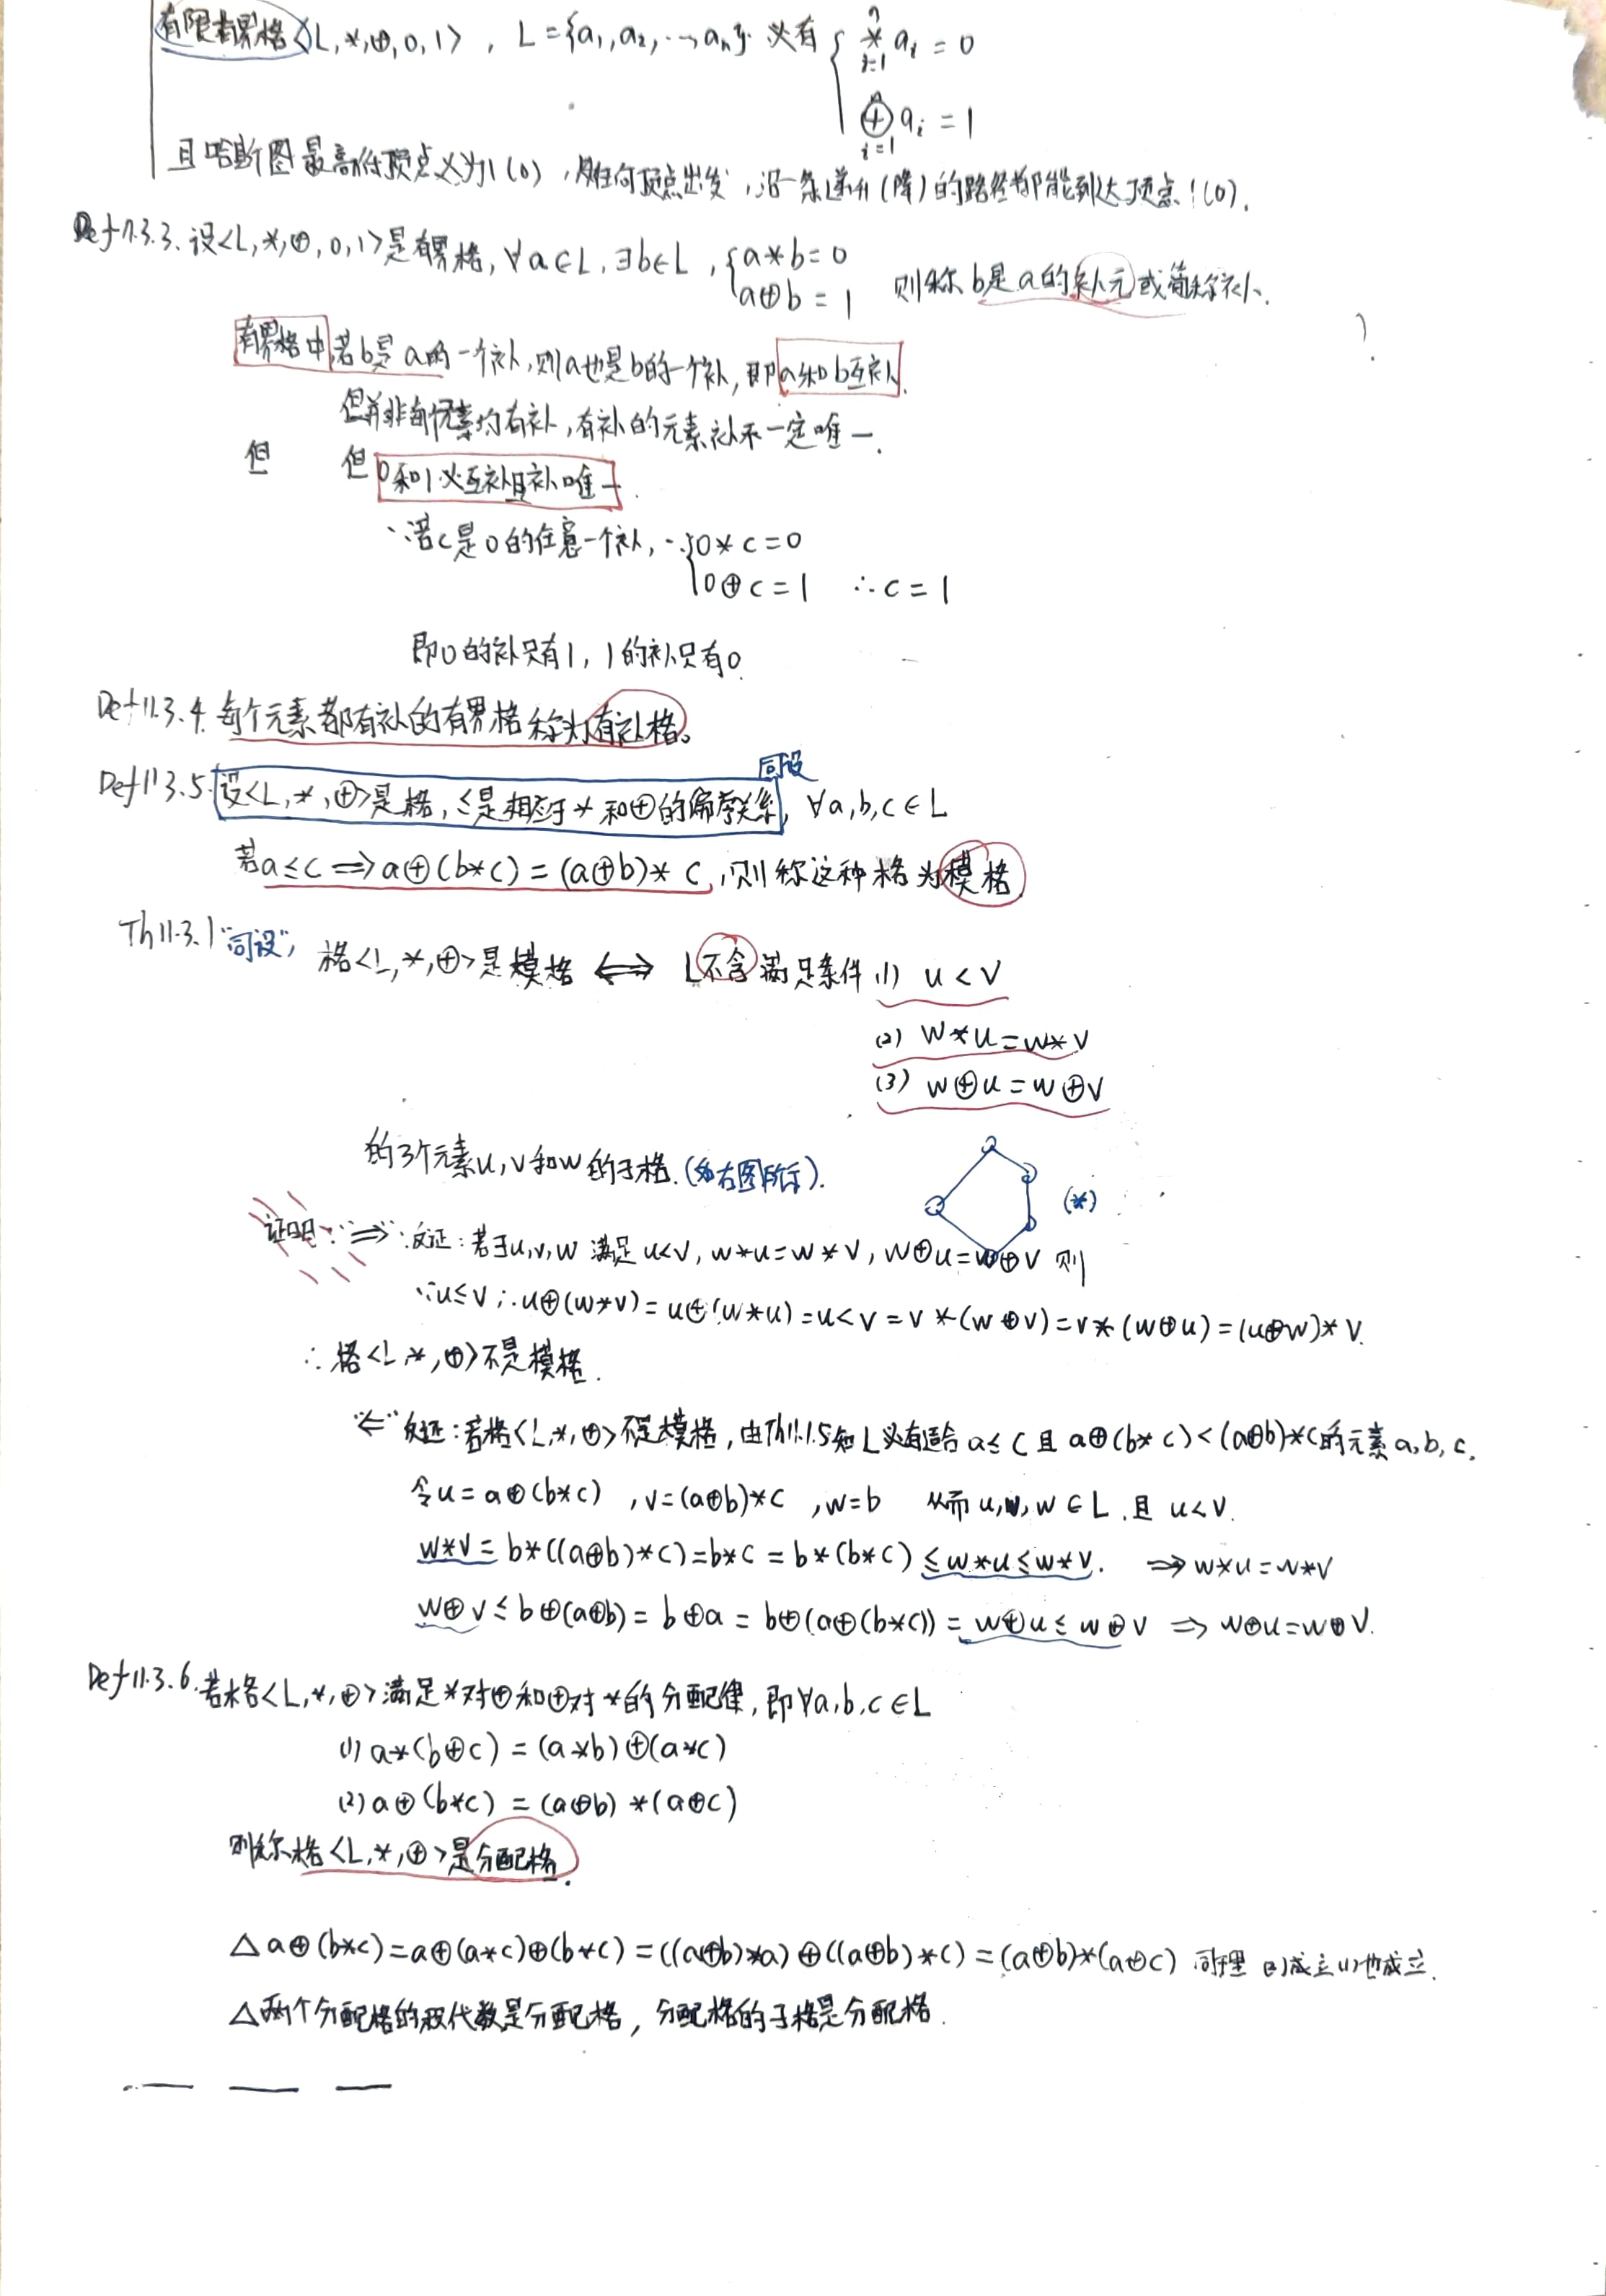 有限有界格<L,*,⊕,0,1>, L={a₁,a₂,…,aₙ}. 必有 { *ⁿᵢ₌₁ aᵢ = 0
⊕ⁿᵢ₌₁ aᵢ = 1
且哈斯图最高(低)顶点必为1(0), 从任何顶点出发, 沿一条递升(降)的路径都能到达顶点1(0).
Def 11.3.3. 设<L,*,⊕,0,1>是有界格, ∀a∈L, ∃b∈L, { a*b=0
a⊕b=1 则称b是a的补元或简称补.
有界格中,若b是a的一个补,则a也是b的一个补, 即a和b互补.
但并非每个元素均有补, 有补的元素补不一定唯一.
但 但0和1必互补且补唯一.
∵若c是0的任意一个补, ∴{ 0*c=0
0⊕c=1 ∴c=1
即0的补只有1, 1的补只有0.
Def 11.3.4. 每个元素都有补的有界格称为有补格。
同设
Def 11.3.5. 设<L,*,⊕>是格, ≤是相应于*和⊕的偏序关系, ∀a,b,c∈L
若a≤c ⟹ a⊕(b*c)=(a⊕b)*c, 则称这种格为模格
Th 11.3.1 "同设", 格<L,*,⊕>是模格 ⟺ L不含满足条件 (1) u<v
(2) w*u=w*v
(3) w⊕u=w⊕v
的3个元素u,v和w的子格.(如右图所示). (*)
证明: "⟹": 反证: 若∃u,v,w 满足u<v, w*u=w*v, w⊕u=w⊕v 则
∵u≤v ∴u⊕(w*v)=u⊕(w*u)=u<v=v*(w⊕v)=v*(w⊕u)=(u⊕w)*v.
∴格<L,*,⊕>不是模格.
"⟸" 反证: 若格<L,*,⊕>不是模格, 由Th11.1.5知L必有适合a≤c且a⊕(b*c)<(a⊕b)*c的元素a,b,c.
令u=a⊕(b*c), v=(a⊕b)*c, w=b 从而u,v,w∈L.且u<v.
w*v=b*((a⊕b)*c)=b*c=b*(b*c)≤w*u≤w*v. ⟹w*u=w*v
w⊕v≤b⊕(a⊕b)=b⊕a=b⊕(a⊕(b*c))=w⊕u≤w⊕v ⟹w⊕u=w⊕v.
Def 11.3.6. 若格<L,*,⊕>满足*对⊕和⊕对*的分配律, 即∀a,b,c∈L
(1) a*(b⊕c)=(a*b)⊕(a*c)
(2) a⊕(b*c)=(a⊕b)*(a⊕c)
则称格<L,*,⊕>是分配格.
△ a⊕(b*c)=a⊕(a*c)⊕(b*c)=((a⊕b)*a)⊕((a⊕b)*c)=(a⊕b)*(a⊕c) 同理(2)成立(1)也成立.
△两个分配格的积代数是分配格, 分配格的子格是分配格.